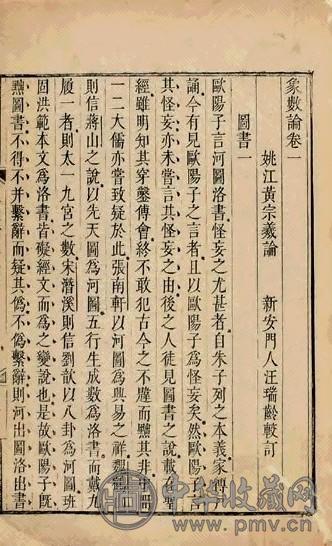 象數論卷一
姚江黃宗羲論　新安門人汪瑞齡較訂
圖書一
歐陽子言河圖洛書怪妄之尤甚者自朱子列之本義家傳戶
誦今有見歐陽子之言者且以歐陽子為怪妄矣然歐陽子言
其怪妄亦未嘗言其怪妄之由後之人徒見圖書之說載在聖
經雖明知其穿鑿傅會終不敢犯古今之不韙而黜其非
一二大儒亦嘗致疑於此張南軒以河圖為興易之祥
則信蔣山之說以先天圖為河圖五行生成數為洛書而戴九
履一者則太一九宮之數宋潛溪則信劉歆以八卦為河圖班
固洪範本文為洛書皆礙經文而為之變說也是故歐陽子既
黜圖書不得不并繫辭而疑其偽不偽繫辭則河出圖洛出書
中华收藏网
www.pmv.cn